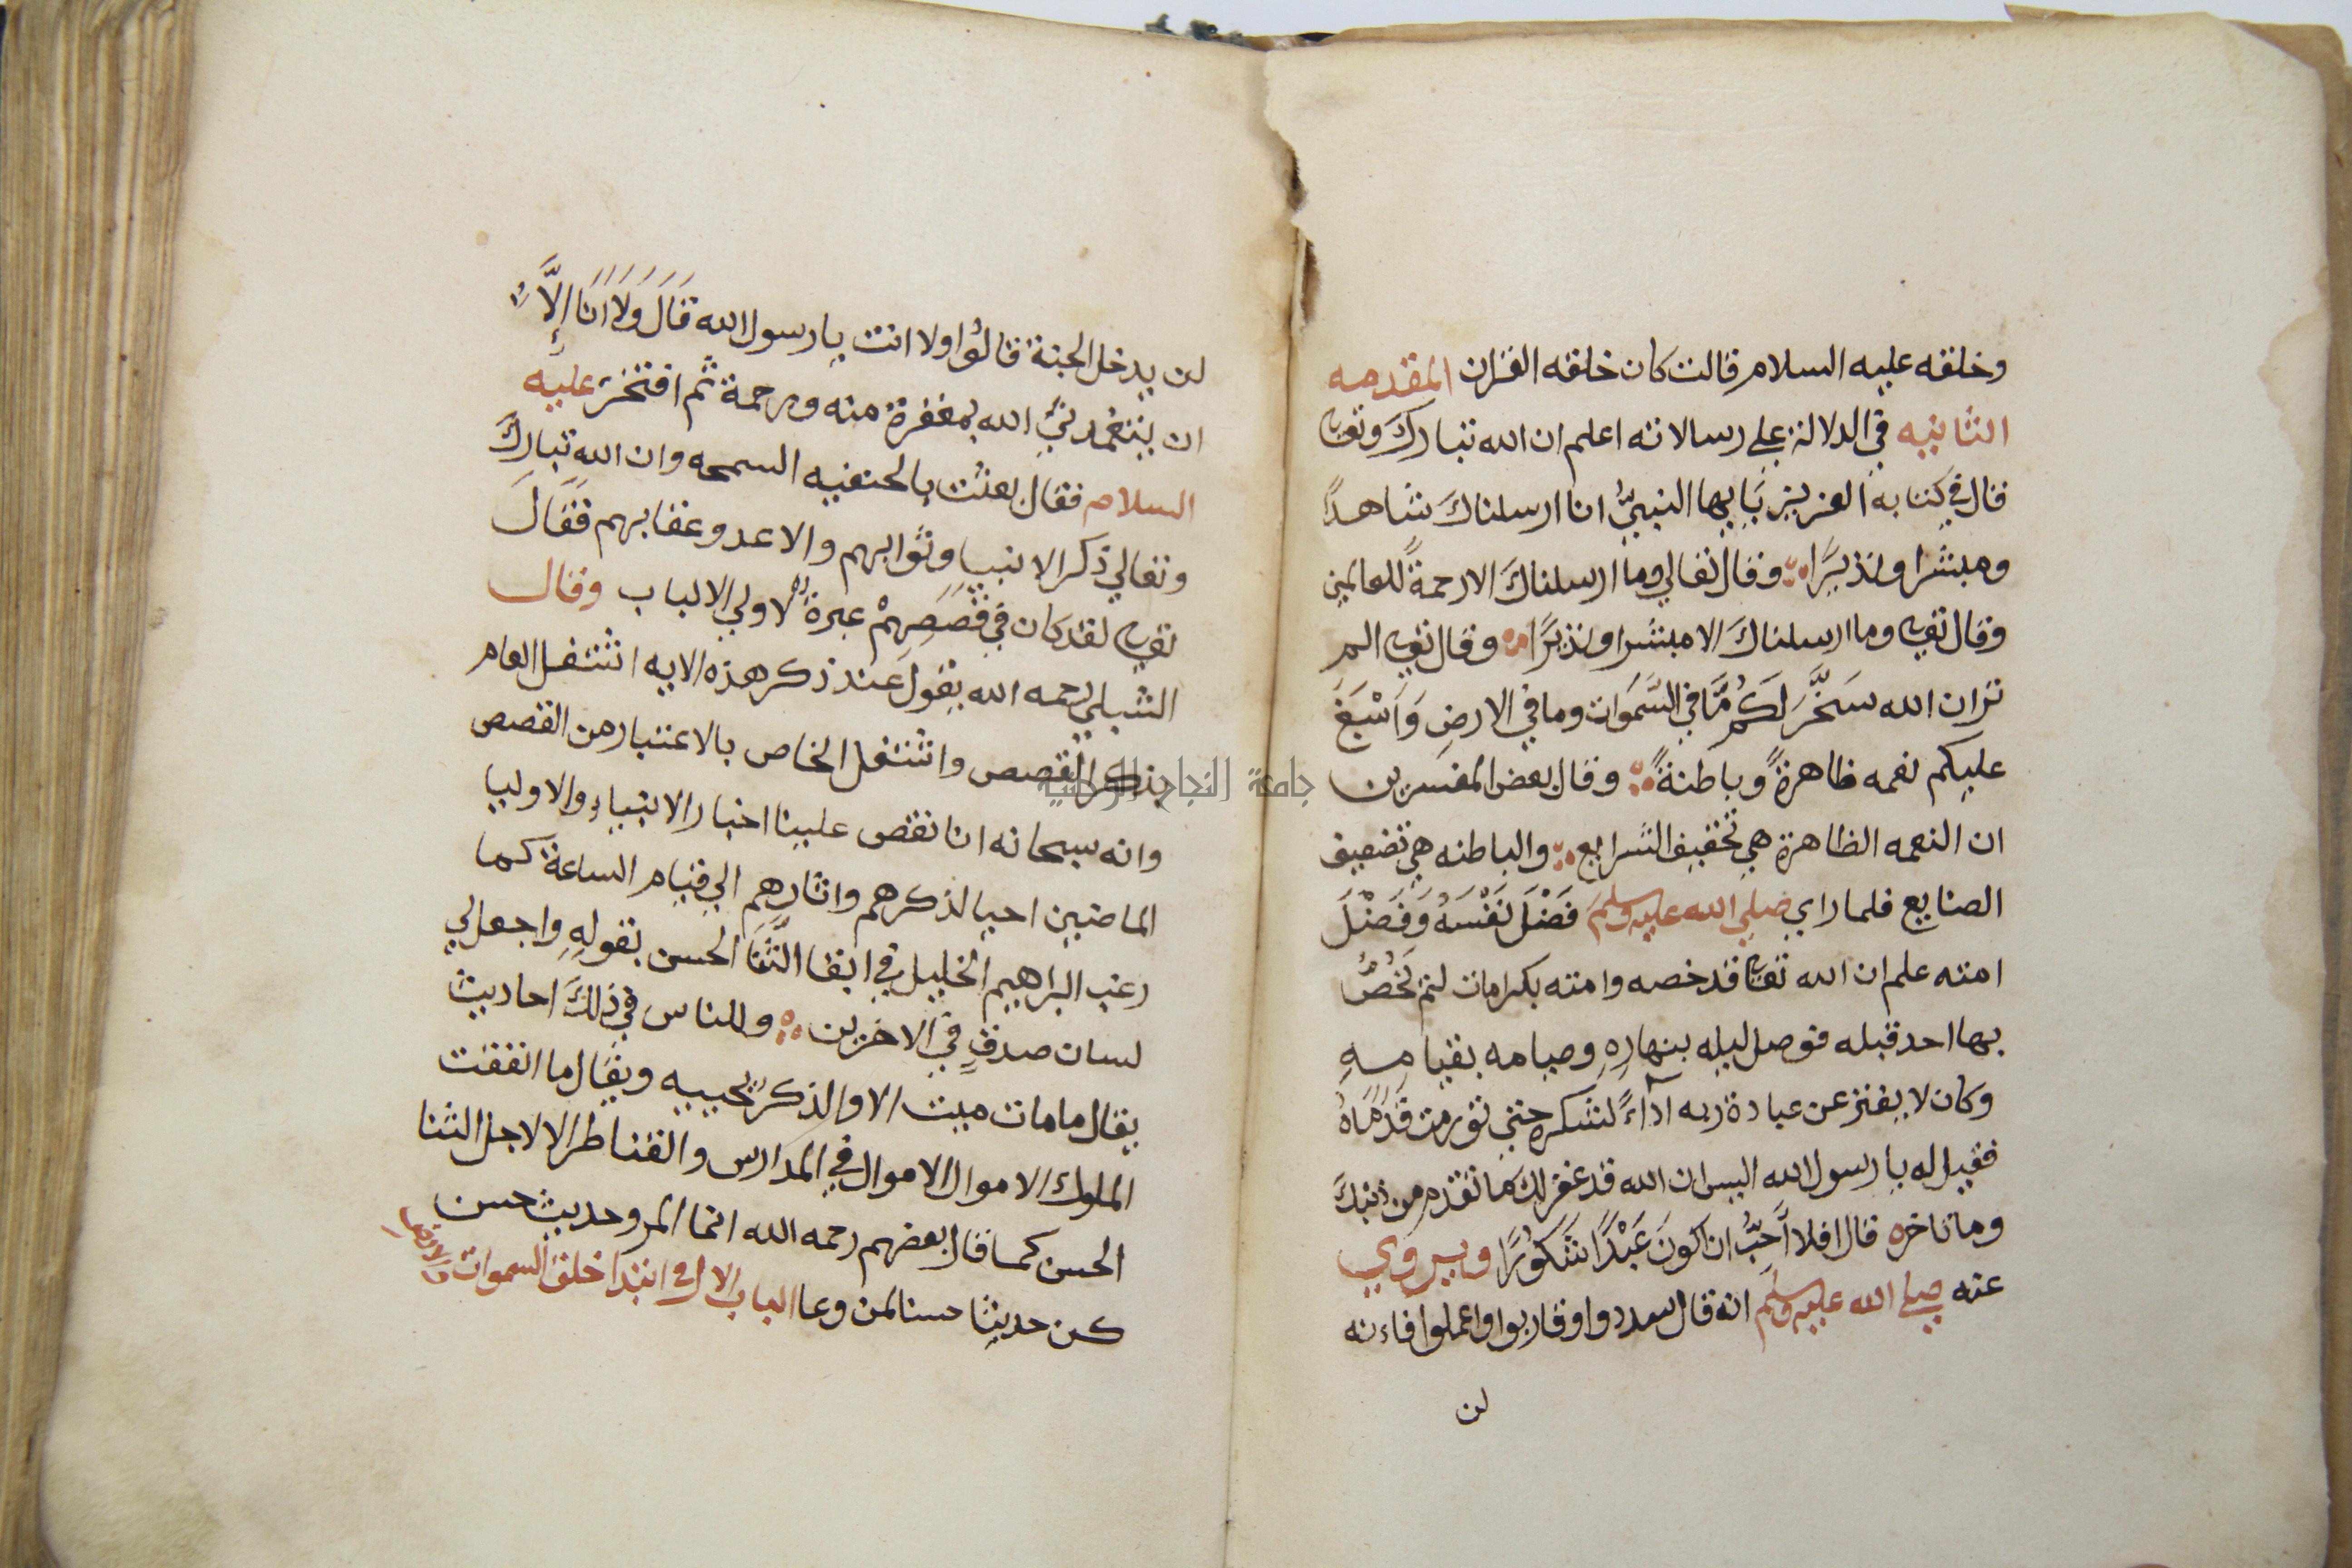 وخلقه عليه السلام قالت كان خلقه القران المقدمه
الثانيه في الدلالة علي رسالاته اعلم ان الله تبارك وتعالى
قال في كتابه العزيز يَايها النبيُّ انا ارسلناكَ شاهدًا
ومبشرا ونذيرًا وقال تعالي وما ارسلناكَ الا رحمةً للعالمين
وقال تعالى وما ارسلناكَ الا مبشرا ونذيرًا وقال تعالى الم
تران الله سَخَّرَ لَكُم مَّا في السَّمَوَات وما في الارضِ وَاَسْبَغَ
عليكم نعمه ظاهرةً وباطنةً وقال بعض المفسرين
ان النعمه الظاهرة هي تخفيف الشرايع والباطنه هي تضعيف
الصنايع فلما راي صلي الله عليه وسلم فَضْلَ نَفْسَهُ وَفَضْلَ
امته علم ان الله تعالى قد خصه وامته بكرامات لم يَخُصُّ
بها احد قبله فوصل ليله بنهارِهِ وصيامه بقيامِهِ
وكان لا يفتر عن عبادة ربه اداءً لشكره حتي تورمت قَدَمَاهُ
فقيل له يا رسول الله اليس ان الله قد غفر لك ما تقدم من ذنبكَ
وما تاخره قال افلا اَحَبُّ ان اكونَ عَبْدًا شَكُورًا ويروي
عنه صلي الله عليه وسلم انه قال سددوا وقاربوا واعملوا فاءنه
لن
لن يدخل الجنة قالُوا ولا انت يا رسول الله قَالَ وَلَا اَنَا اِلَّا
ان يتغمدنيَ الله بمغفرة منه ورحمة ثم افتخرَ عليه
السلام فقال بعثت بالحنفيه السمحه وان الله تباركَ
وتعالي ذكر الانبيا وثوابهم والاعد وعقابهم فَقَالَ
تعالى لقد كان في قَصَصِهِمْ عبرةٌ لاولي الالباب وقال
الشبلي رحمه الله يقول عند ذكر هذه الايه اشتغل العام
بذكر القصص واشتغل الخاص بالاعتبار من القصص
جامعة النجاح الوطنية
وانه سبحانه انا نقص علينا اخبار الانبياء والاوليا
الماضيين احيا لذكرهم واثارهم الي قيام الساعة كما
رغب ابراهيم الخليل في ابقا الثَّنَا الحسن بقولِهِ واجعل لي
لسان صدقٍ في الاخرين وللناس في ذلكَ احاديث
يقال مامات ميت الا والذكرُ يحييه ويقال ما انفقت
الملوك الاموال الاموال في المدارس والقناطر الا لاجل الثنا
الحسن كما قال بعضهم رحمه الله انما المرو حديث حسن
كن حديثا حسنا لمن وعا الباب الاول في ابتدا خلق السموات